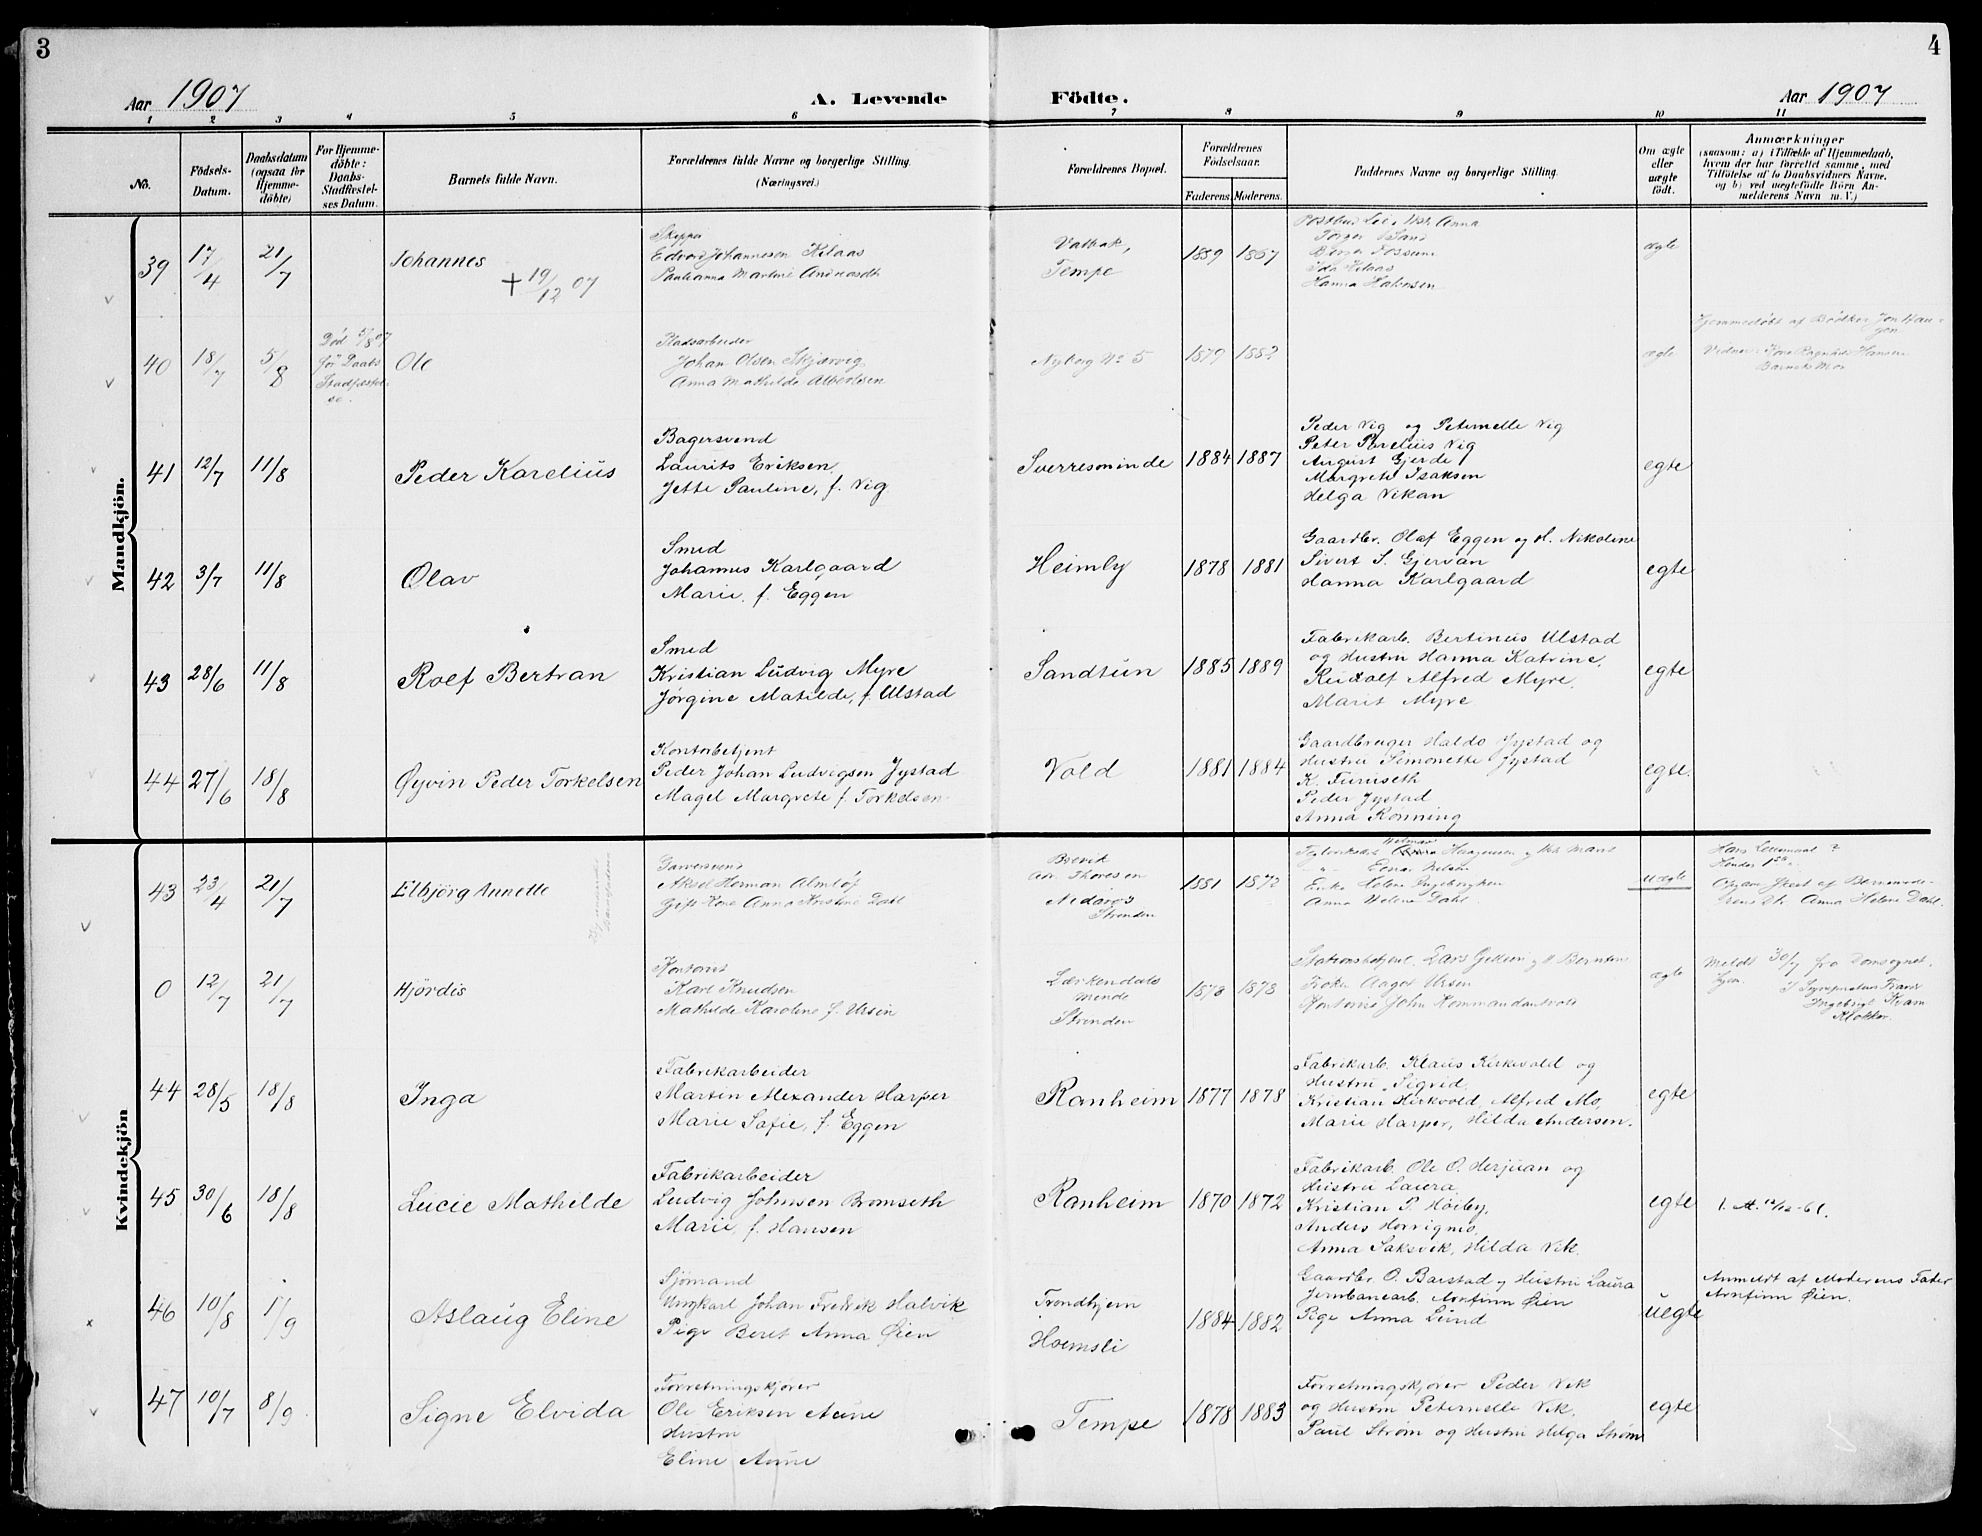 3
4
Aar 1907
A. Levende
Födte.
Aar 1907
1 2 3 4 5 6 7 8 9 10 11
No.
Födsels-
Datum.
Daabsdatum
(ogsaa for
Hjemme-
döbte)
For Hjemme-
döbte:
Daabs-
Stadfæstel-
ses Datum.
Barnets fulde Navn.
Forældrenes fulde Navne og borgerlige Stilling.
(Næringsvei.)
Forældrenes Bopæl.
Forældrenes
Födselsaar.
Faderens. Moderens.
Faddernes Navne og borgerlige Stilling.
Om ægte
eller
uægte
födt.
Anmærkninger
(saasom: a) i Tilfælde af Hjemmedaab,
hvem der har forrettet samme, med
Tilföielse af to Daabsvidners Navne,
og b) ved uægtefödte Börn An-
melderens Navn m. V.)
Mandkjön.
39
17/4
21/7
Johannes
+ 19/12 07
Skipper
Edvard Johannesen Kilaas
Tempe
1867
Ida Kilaas
ægte
40
18/7
5/8
Død 5/8 07
før Daabs
Stadfæstel
se.
Ole
Pladsarbeider
Johan Olsen Skjærvig
Anna Mathilde Albertsen
Nyborg No 5
1879 1882
ægte
Hjemmedøbt af Bødker Jon Hau-
gen
Barnets Mor
41
12/7
11/8
Peder Karelius
Bagersvend
Laurits Eriksen
Jette Pauline, f. Vig
Sverresminde
1884 1887
Peder Vig og Peternelle Vig
Peter Parelius Vig
August Gjerde
Margrete Isaksen
Helga Vikan
egte
42
3/7
11/8
Olav
Smed
Johannes Karlgaard
Marie f. Eggen
Heimly
1878 1881
Gaardbr. Olaf Eggen og H. Nikoline
Sivert S. Gjervan
Hanna Karlgaard
egte
43
28/6
11/8
Rolf Bertran
Smed
Kristian Ludvig Myre
Jørgine Matilde, f. Ulstad
Sandtun
1885 1889
Fabrikarb. Bertinus Ulstad
og Hustru Hanna Katrine,
Rudolf Alfred Myre,
Marit Myre
egte
44
27/6
18/8
Øyvin Peder Torkelsen
Kontorbetjent
Peder Johan Ludvigsen Jystad
Magel Margrete f. Torkelsen
Vold
1881 1884
Gaardbruger Haldo Jystad og
Hustru Simonette Jystad
K. Furuseth
Peder Jystad
Anna Rønning
egte.
Kvindekjön
43
23/4
21/7
Elbjörg Annette
Garversvend
Aksel Herman Almlöf
Gift Kone Anna Kristine Dahl
Brevik
adr. Thoresen
Nidarö 3
Strinden
1881 1872
Anna Helene Dahl
uægte
Anna Helene Dahl.
0
12/7
21/7
Hjördis
Kontorist
Karl Knudsen
Mathilde Karoline f. Ursin
Lerkendals
minde
Strinden
1878 1873
Frøken Aagot Ursin
Kontorist John Kommandantvold
ægte
Meldt 30/7 fra Domsognet.
Ingebrigt Kvam
Klokker.
44
28/5
18/8
Inga
Fabrikarbeider
Martin Alexander Harper
Marie Sofie, f. Eggen
Ranheim
1877 1878
Fabrikarb. Klaus Kirkvold og
Hustru Sigrid,
Kristian Kirkvold, Alfred Mo,
Marie Harper, Hilda Andersen.
egte
45
30/6
18/8
Lucie Mathelde
Fabrikarbeider
Ludvig Johnsen Bromseth
Marie, f. Hansen
Ranheim
1870 1872
Fabrikarb. Ole O. Herjuan og
Hustru Laura
Kristian P. Höiby,
Anders Horrigmo,
Anna Saksvik, Hilda Vik.
egte
1. A. 12/12-61.
46
10/8
1/9
Aslaug Eline
Sjömand
Ungkarl Johan Fredrik Halvik
Pige Beret Anna Øien
Trondhjem
Hoemsli
1884 1882
Gaardbr O. Barstad og Hustru Laura
Jernbanearb. Arnfinn Øien
Pige Anna Lund
uegte
Anmeldt af Moderens Fater
Arnfinn Øien.
47
10/7
8/9
Signe Elvida
Forretningskjører
Ole Eriksen Aune
Hustru
Eline Aune
Tempe
1878 1883
Forretningskjører Peder Vik
og Hustru Peternelle Vik,
Paul Strøm og Hustru Helga Strøm
egte